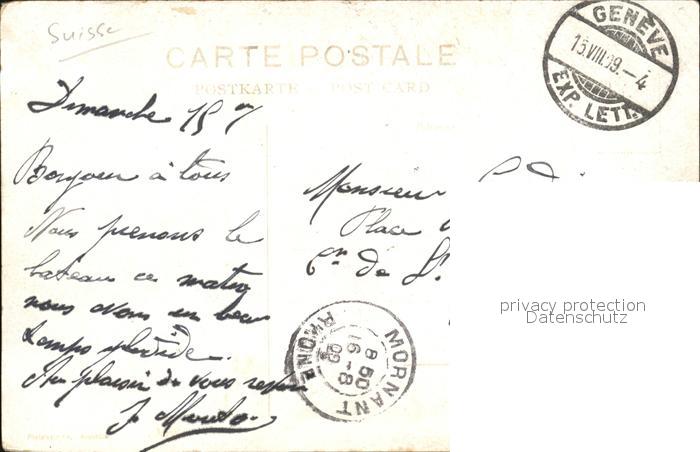 Suisse
CARTE POSTALE
POSTKARTE POST CARD
GENÈVE
15.VIII.09.-4
EXP. LETT.
Dimanche 15
Bonjour à tous
Nous prenons le
bateau ce matin
nous avons un beau
temps splendide.
Au plaisir de vous revoir
Monsieur
Place
de S
privacy protection
Datenschutz
MORNANT
8 50
16-8
09
RHONE